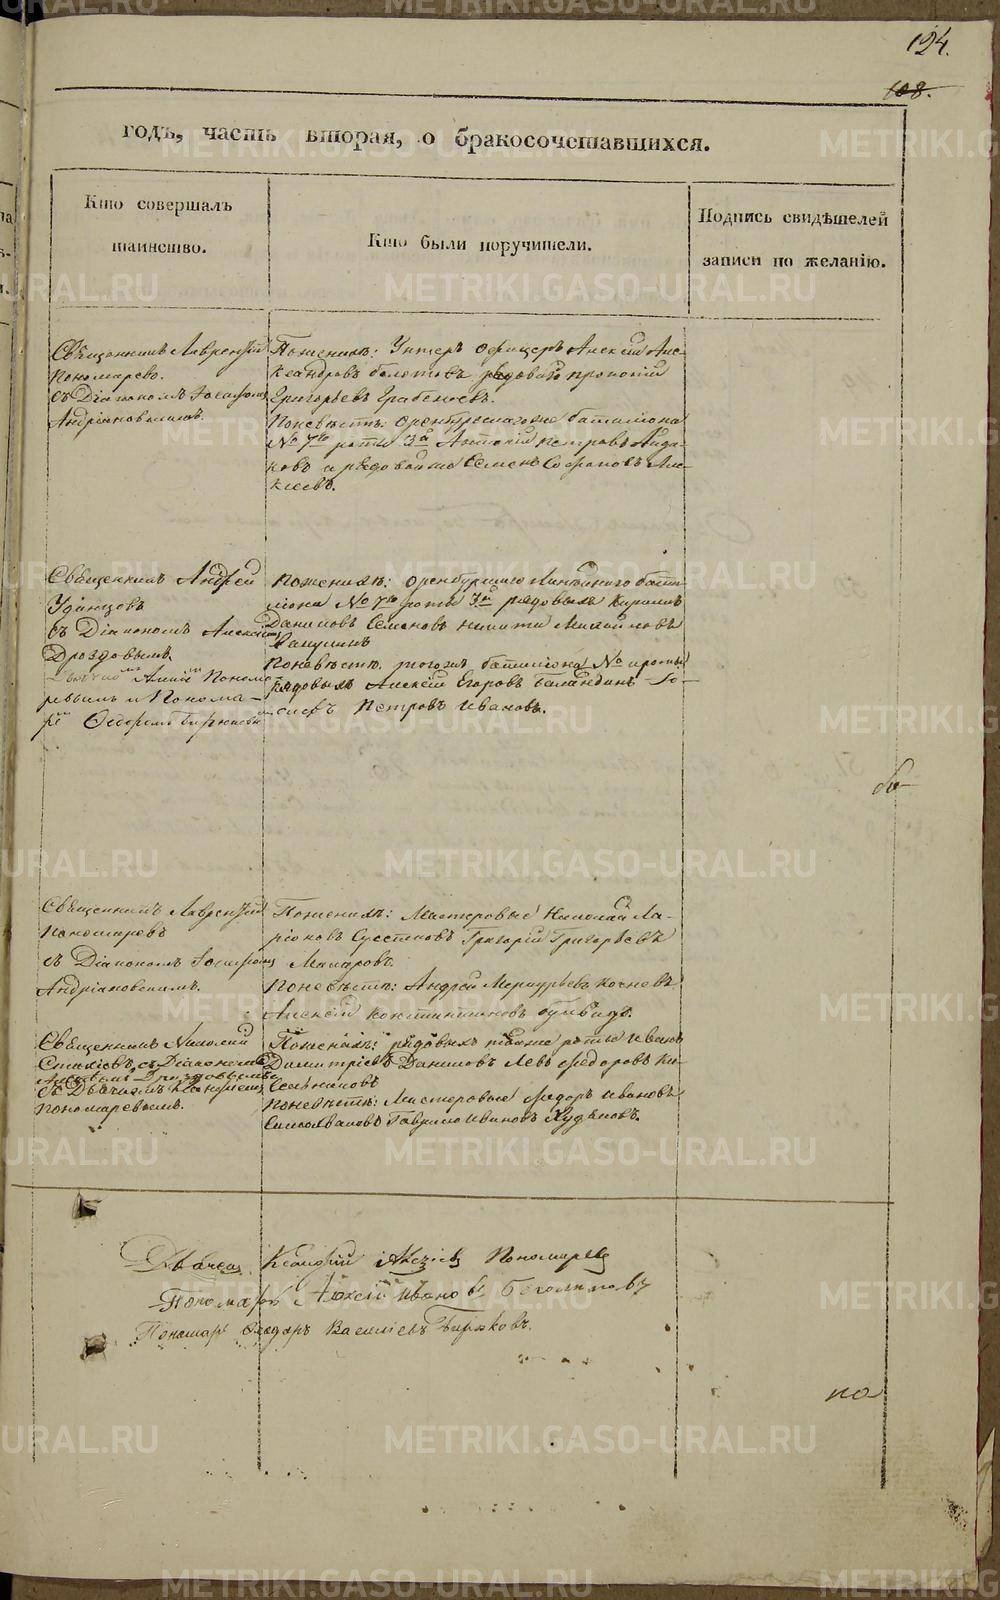 124.
108.
годъ, часть вторая, о бракосочетавшихся.
Кто совершалъ
таинство.
Кто были поручители.
Подпись свидѣтелей
записи по желанію.
Священникъ Лаврентій
Пономарево.
съ Діакономъ Іосифомъ
Андріановскимъ.
Поженихѣ: Унтеръ офицеръ Алексѣй Алек-
сандровъ Болотовъ рядовой Прокопій
Григорьевъ Грабежовъ.
Поневѣстѣ: Оренбурскаго баталіона
№ 7го роты 3й Антоній Петровъ
и рядовой Семенъ Софроновъ Але-
ксеевъ.
Священникъ Андрей
Удинцовъ
съ Діакономъ Алексѣемъ
Дроздовымъ
Пономо-
ревымъ и Понома-
рё Ѳедоромъ
Поженихѣ: Оренбурскаго Линейнаго бата-
ліона № 7го роты 3й рядовые Кирилъ
Даниловъ Семеновъ Никита Михайловъ
Поневѣстѣ. тогожъ баталіона № роты
рядовые Алексѣй Егоровъ Баландинъ
Петровъ Ивановъ.
Священникъ Лаврентій
Пономаревъ
съ Діакономъ Іосифомъ
Андріановскимъ.
Поженихѣ: Мастеровые Николай Ла-
ріоновъ Суестновъ Григорій Григорьевъ
Макаровъ.
Поневѣстѣ: Андрей Меркурьевъ Кочневъ
Алексѣй Константиновъ
Священникъ Николай
съ Діакономъ
Алексѣемъ Дроздовымъ
съ Дьячкомъ
Пономаревымъ.
Поженихѣ: рядовые роты Иванъ
Димитріевъ Даниловъ Левъ Ѳедоровъ
Поневѣстѣ: Мастеровые Ѳедоръ Ивановъ
Гаврило Ивановъ Худяковъ.
Дьячекъ Ксенофонтъ Алексѣевъ Пономаревъ
Пономарь Алексѣй Ивановъ Боголиповъ
Пономарь Ѳедоръ Василіевъ Бирюковъ.
бо
по
METRIKI.GASO-URAL.RU